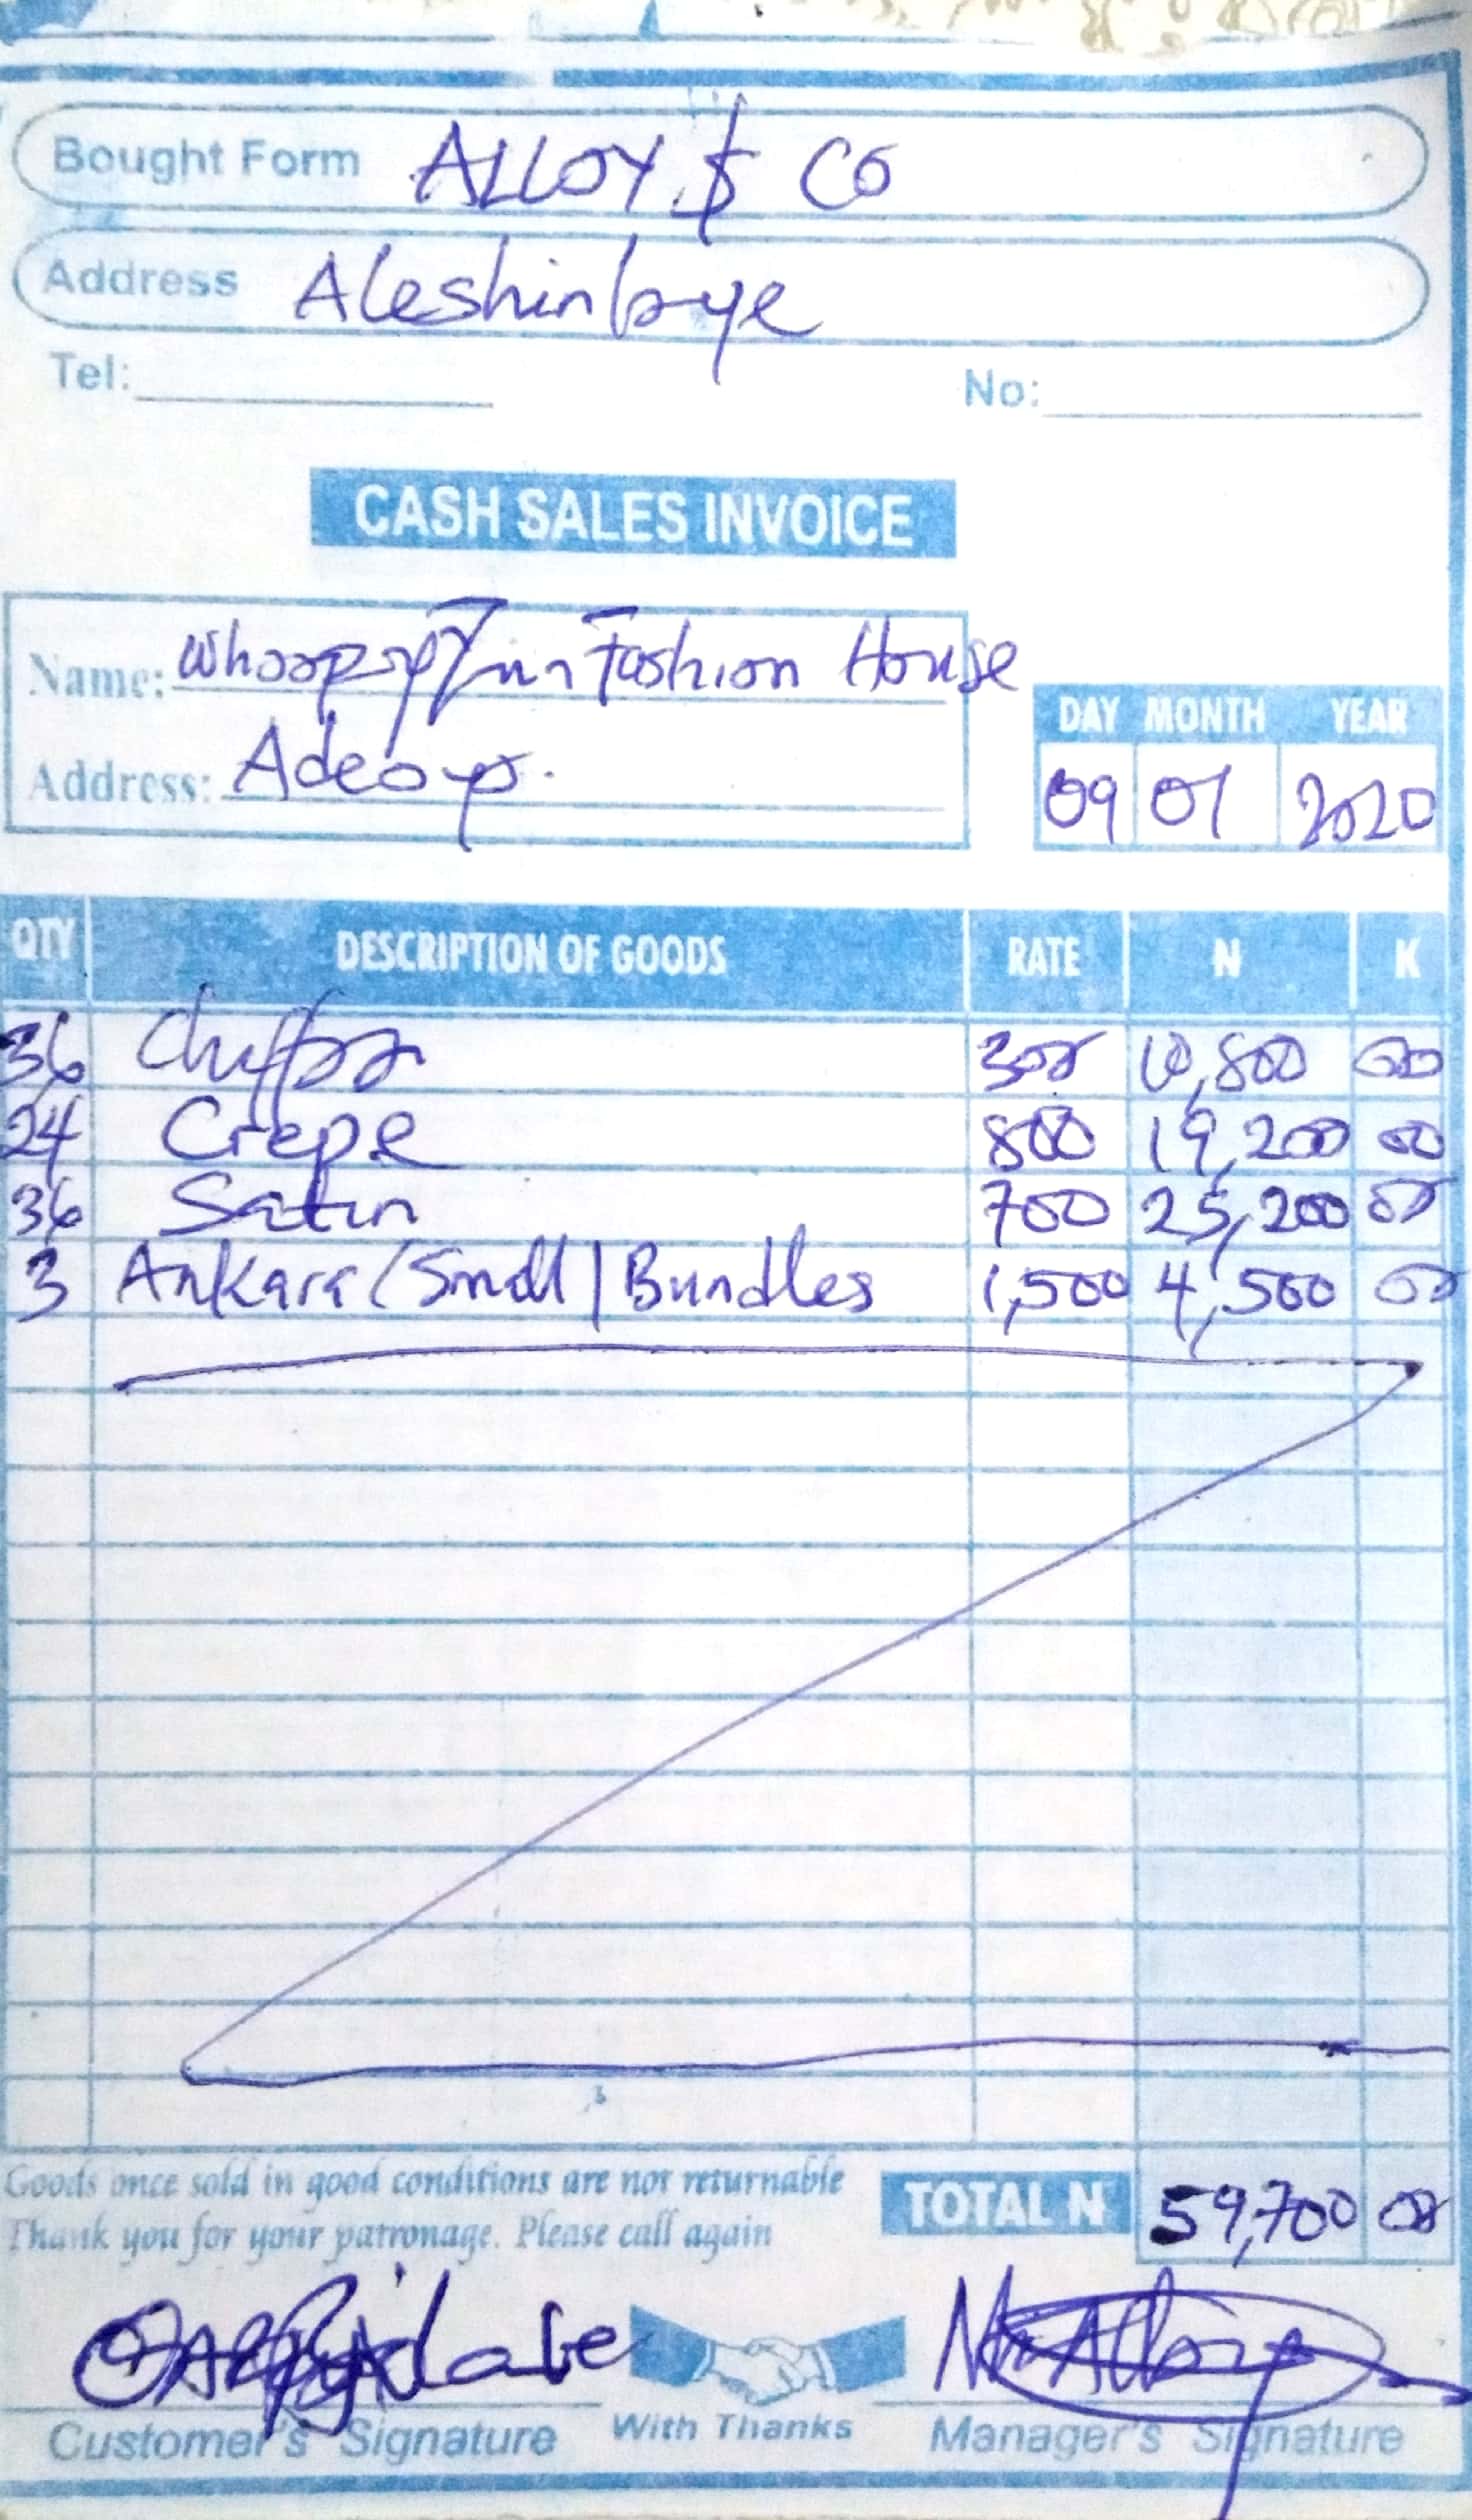 Bought Form ALLOY & CO
Address Aleshinloye
Tel:
No:
CASH SALES INVOICE
Name: Fashion House
Address: Adeoyo.
DAY MONTH YEAR
09 01 2020
QTY DESCRIPTION OF GOODS RATE N K
36 Chiffon 300 10,800 00
24 Crepe 800 19,200 00
36 Satin 700 25,200 00
3 Ankara (Small) Bundles 1,500 4,500 00
Goods once sold in good conditions are not returnable
Thank you for your patronage. Please call again
TOTAL N 59,700 00
Customer's Signature With Thanks Manager's Signature